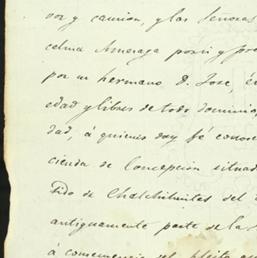 nor y camión, y las Señoras
celma Ameraga por si y pre
por su hermano D. José, é
edad y libres de todo dominio,
dad, á quienes doy fé conos
cienda de Concepcion situad
tido de Chalchihuites del
antiguamente parte de la
á consecuencia del pleito que